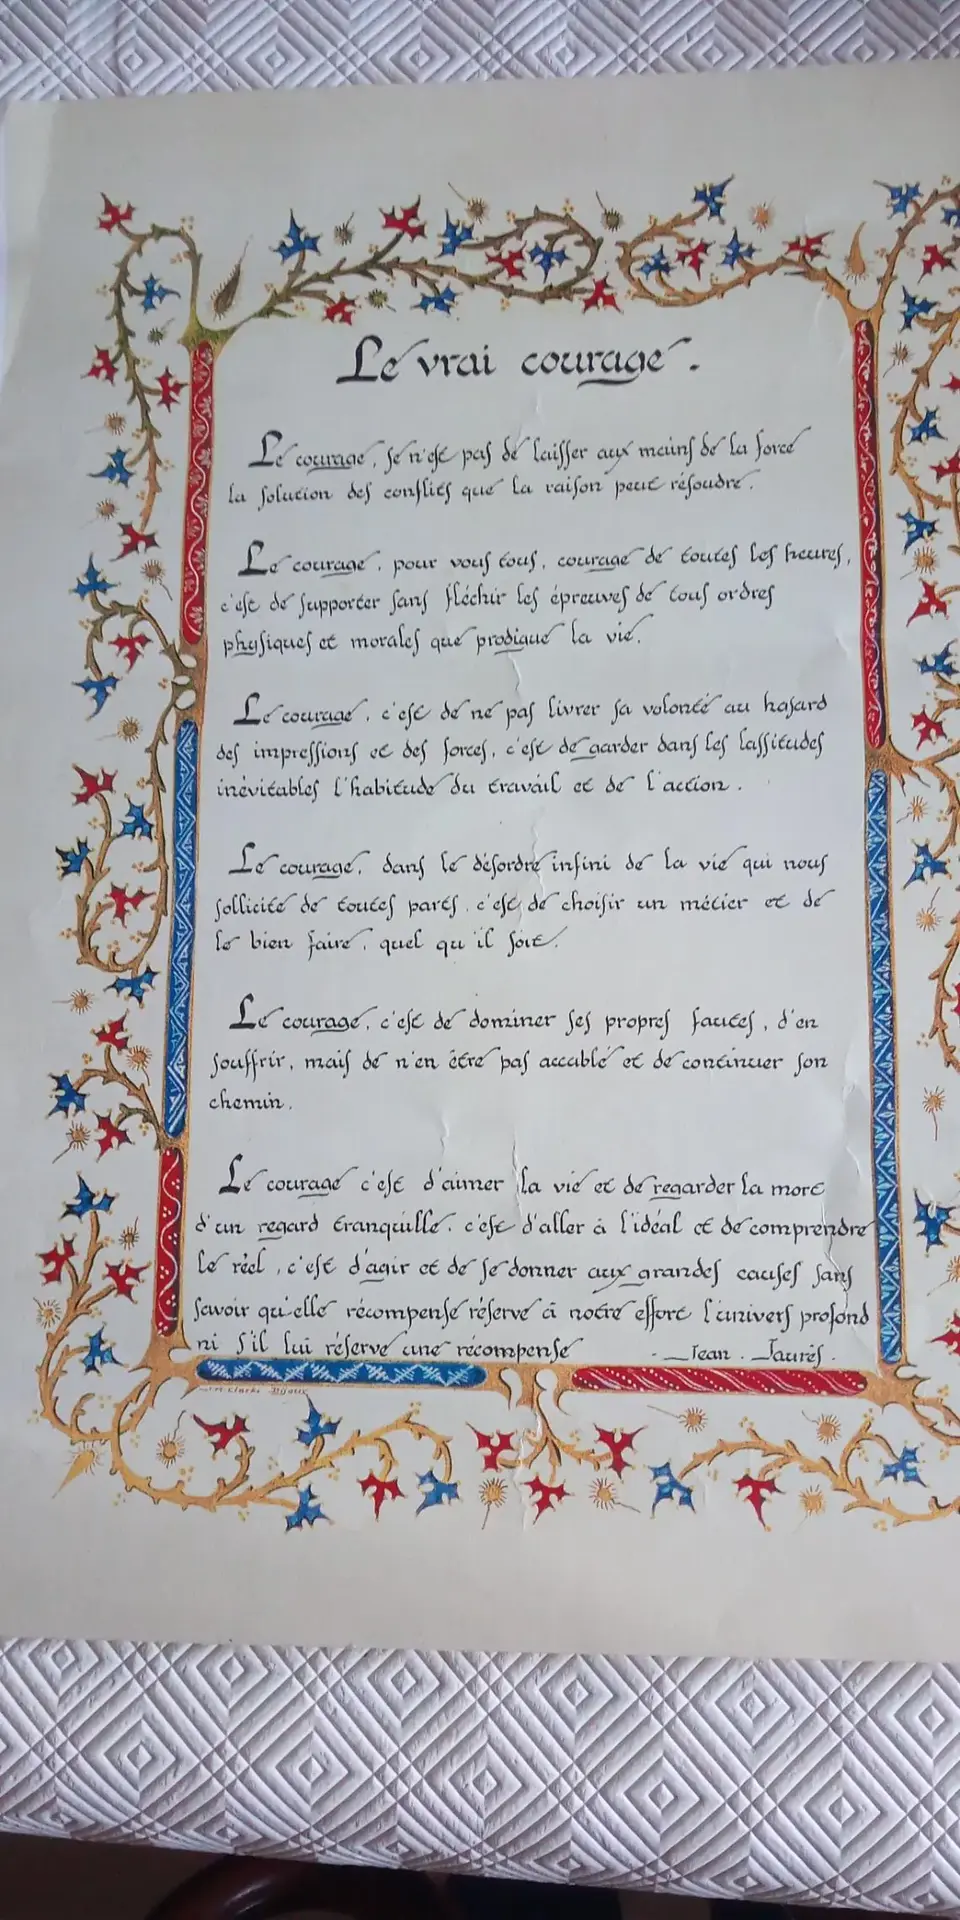 Le vrai courage.
Le courage, se n'est pas de laisser aux mains de la force
la solution des conflits que la raison peut résoudre.
Le courage, pour vous tous, courage de toutes les heures,
c'est de supporter sans fléchir les épreuves de tous ordres
physiques et morales que prodigue la vie.
Le courage, c'est de ne pas livrer sa volonté au hasard
des impressions et des forces, c'est de garder dans les lassitudes
inévitables l'habitude du travail et de l'action.
Le courage, dans le désordre infini de la vie qui nous
sollicite de toutes parts, c'est de choisir un métier et de
le bien faire, quel qu'il soit.
Le courage, c'est de dominer ses propres fautes, d'en
souffrir, mais de n'en être pas accablé et de continuer son
chemin.
Le courage c'est d'aimer la vie et de regarder la mort
d'un regard tranquille, c'est d'aller à l'idéal et de comprendre
le réel, c'est d'agir et de se donner aux grandes causes sans
savoir qu'elle récompense réserve à notre effort l'univers profond
ni s'il lui réserve une récompense
Jean. Jaurès.